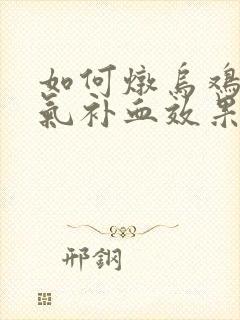 如何燉烏鸡
氣补血效果
邢鋼